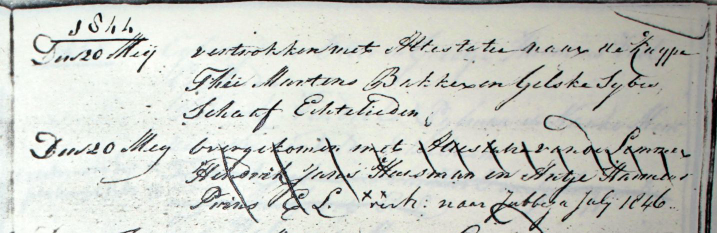 1844
Dus 20 Meij vertrokken met Attestatie naar de Knijpe
Thei Martens Bakker en Gelske Sybes
Schaaf Echtelieden
Dus 20 Meij overgekomen met Attestatie van de Lemmer
Hendrik Jans Huisman en Antje Harmens
Prins E. L. vertk: naar Jubbega July 1846